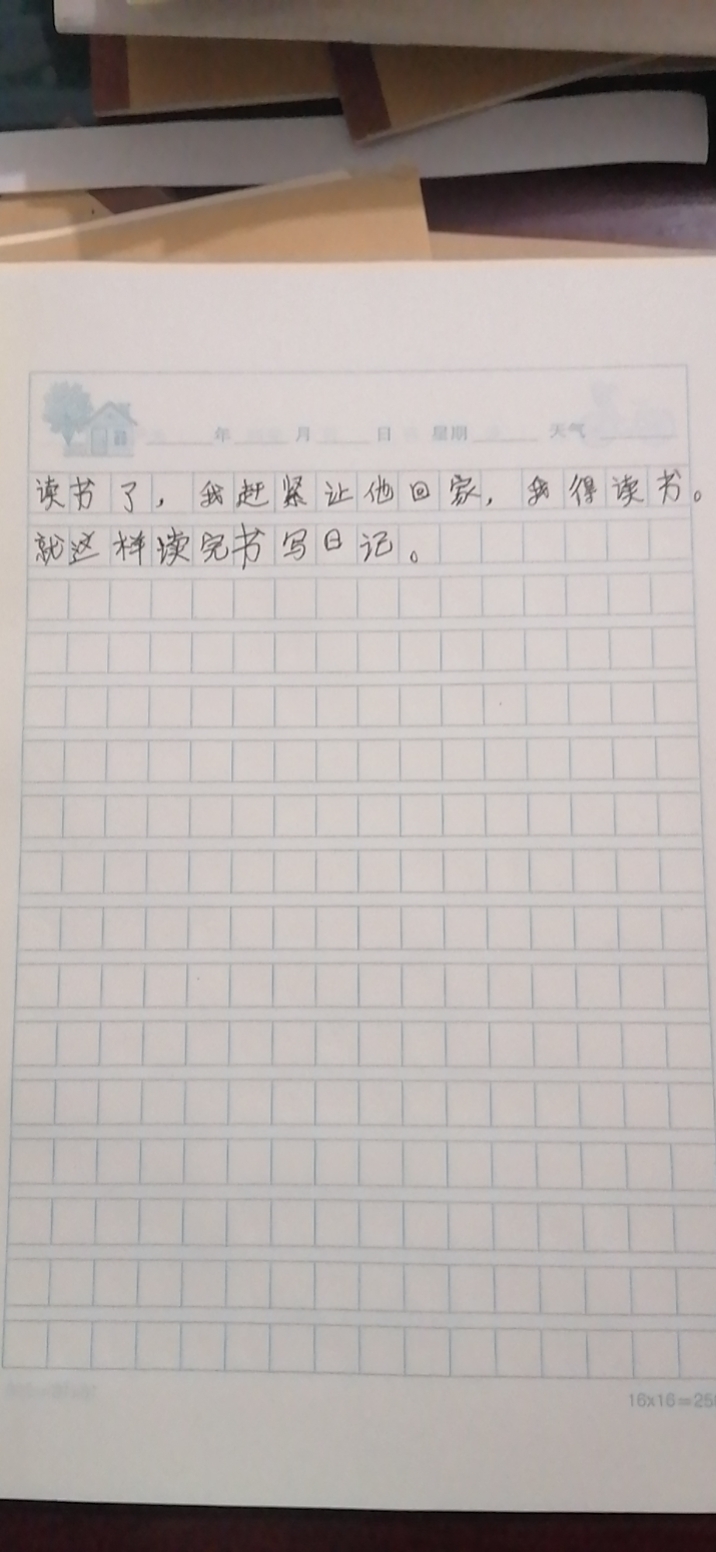 年 月 日 星期 天气
读书了，我赶紧让他回家，我得读书。
就这样读完书写日记。
16x16=25